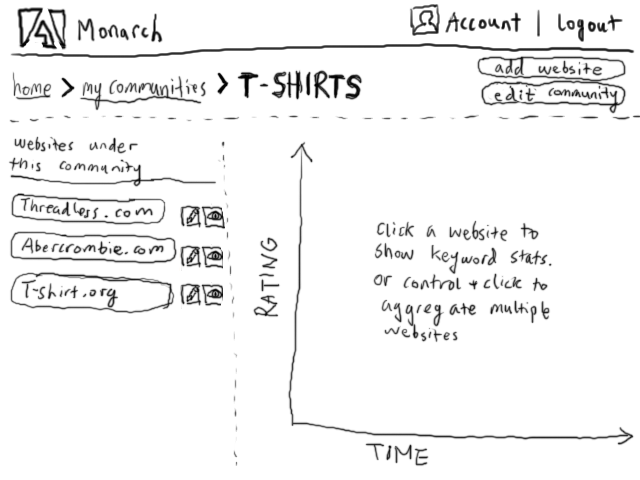 Monarch
Account | logout
home > my communities > T-SHIRTS
add website
edit community
websites under
this community
Threadless.com
Abercrombie.com
T-shirt.org
RATING
Click a website to
show keyword stats.
or control + click to
aggregate multiple
websites
TIME